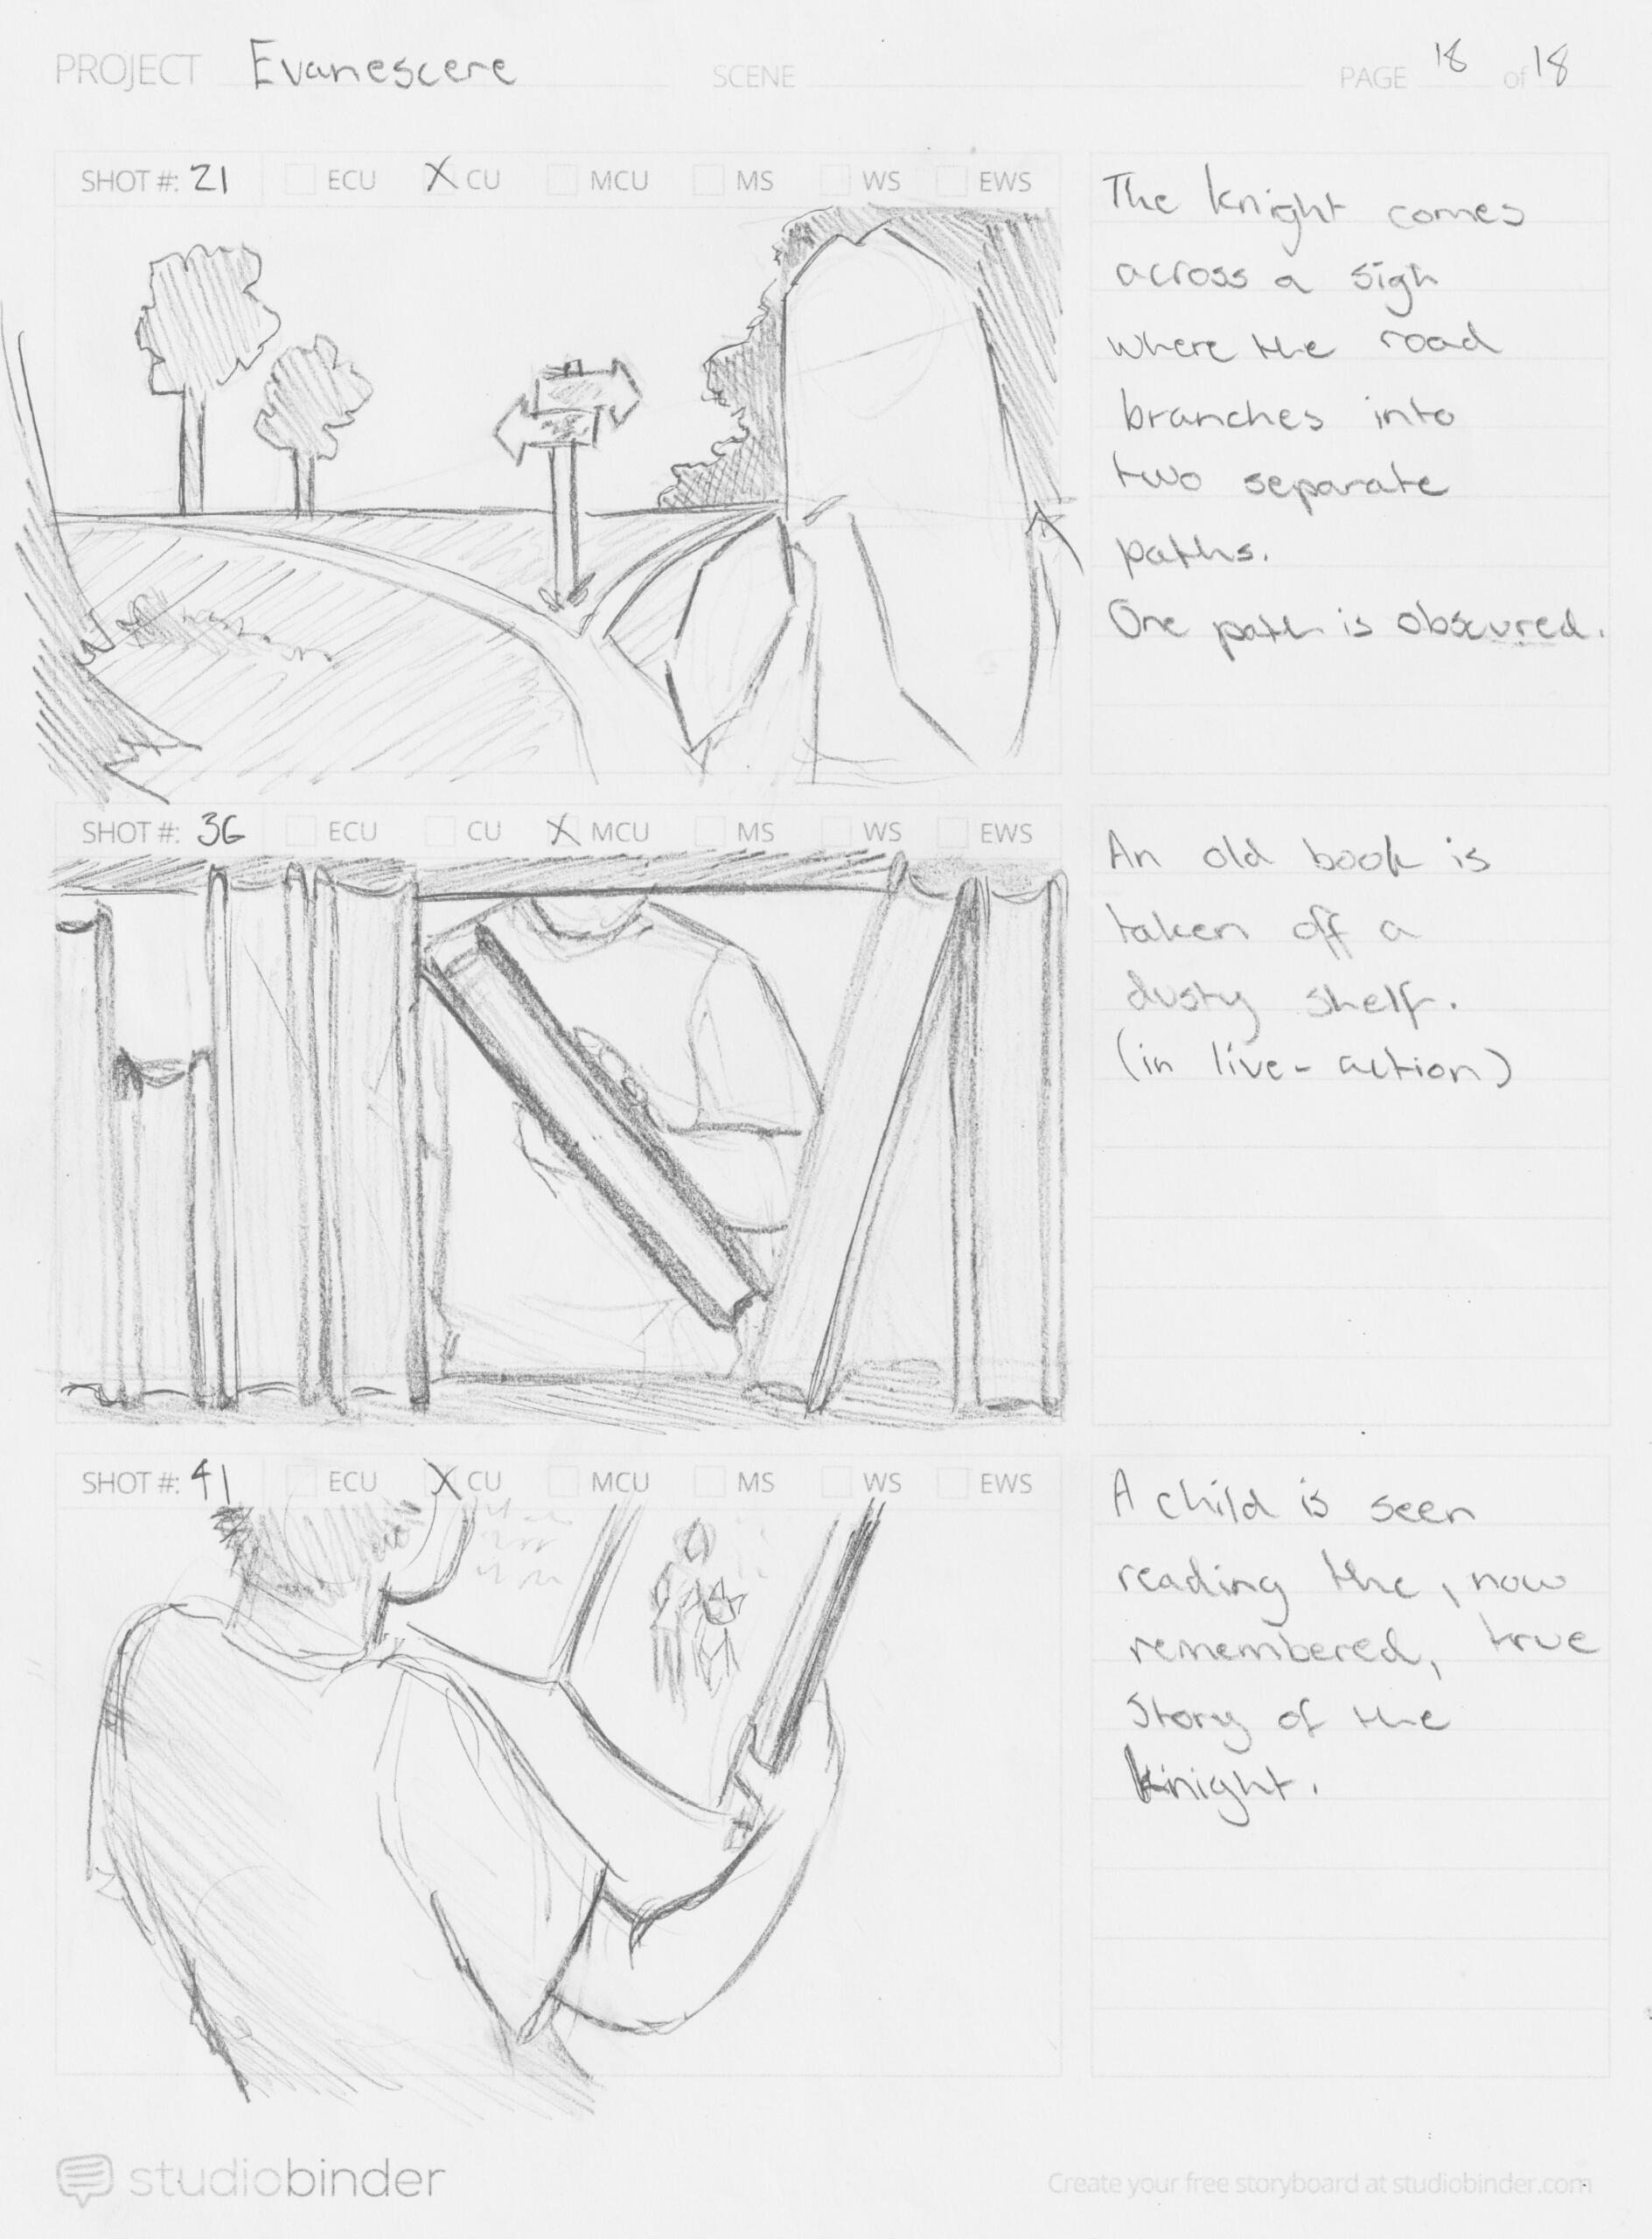 PROJECT Evanescere SCENE PAGE 18 of 18
SHOT #: 21 ECU X CU MCU MS WS EWS
The knight comes
across a sign
where the road
branches into
two separate
paths.
One path is obscured.
SHOT #: 36 ECU CU X MCU MS WS EWS
An old book is
taken off a
dusty shelf.
(in live-action)
SHOT #: 41 ECU X CU MCU MS WS EWS
A child is seen
reading the, now
remembered, true
story of the
knight.
studiobinder
Create your free storyboard at studiobinder.com